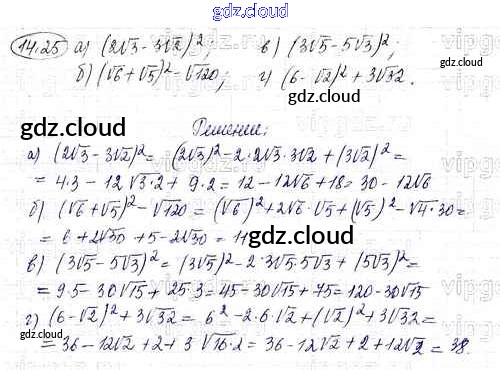 gdz.cloud
14.25 а) (2√3 - 3√2)²; в) (3√5 - 5√3)²;
б) (√6 + √5)² - √120; г) (6 - √2)² + 3√32.
gdz.cloud
gdz.cloud
Решение:
gdz.cloud
а) (2√3 - 3√2)² = (2√3)² - 2·2√3·3√2 + (3√2)² =
= 4·3 - 12√3·2 + 9·2 = 12 - 12√6 + 18 = 30 - 12√6
б) (√6 + √5)² - √120 = (√6)² + 2√6·√5 + (√5)² - √4·30 =
= 6 + 2√30 + 5 - 2√30 = 11
gdz.cloud
в) (3√5 - 5√3)² = (3√5)² - 2·3√5·5√3 + (5√3)² =
= 9·5 - 30√15 + 25·3 = 45 - 30√15 + 75 = 120 - 30√15
г) (6 - √2)² + 3√32 = 6² - 2·6·√2 + (√2)² + 3√32 =
= 36 - 12√2 + 2 + 3√16·2 = 36 - 12√2 + 2 + 12√2 = 38.
gdz.cloud
gdz.cloud